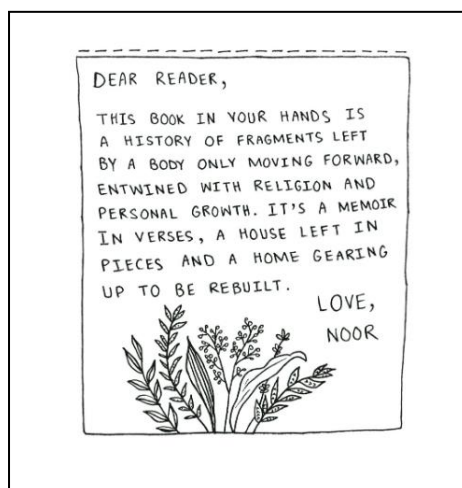 DEAR READER,
THIS BOOK IN YOUR HANDS IS
A HISTORY OF FRAGMENTS LEFT
BY A BODY ONLY MOVING FORWARD,
ENTWINED WITH RELIGION AND
PERSONAL GROWTH. IT'S A MEMOIR
IN VERSES, A HOUSE LEFT IN
PIECES AND A HOME GEARING
UP TO BE REBUILT.
LOVE,
NOOR